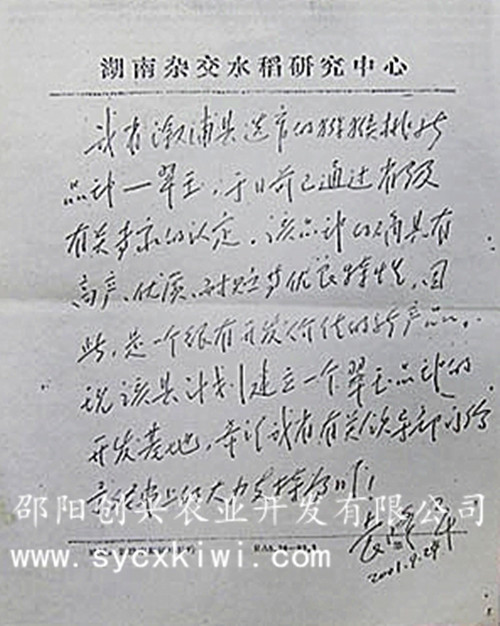 湖南杂交水稻研究中心
我省溆浦县选育的猕猴桃新
品种—翠玉，于日前已通过省级
有关专家的认定。该品种的确具有
高产、优质、耐贮等优良特性，因
此，是一个很有开发价值的新产品。
说该县计划建立一个翠玉品种的
开发基地，希望我省有关领导部门给
予经费上的大力支持为盼！
邵阳创兴农业开发有限公司
www.sycxkiwi.com
袁隆平
2001.9.24